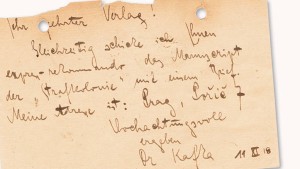 Sehr geehrter Verlag!
Gleichzeitig schicke ich Ihnen
express-rekommando das Manuscript
der "Strafkolonie" mit einem Brief.
Meine Adresse ist: Prag, Pořič 7
Hochachtungsvoll
ergeben
Dr Kafka 11 XI 18